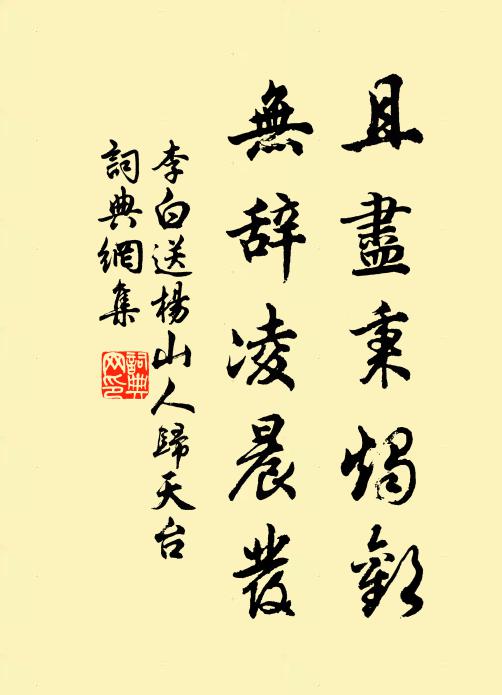 且盡秉燭歡
無辞凌晨發
李白送楊山人歸天台
詞典網集
詞典网印